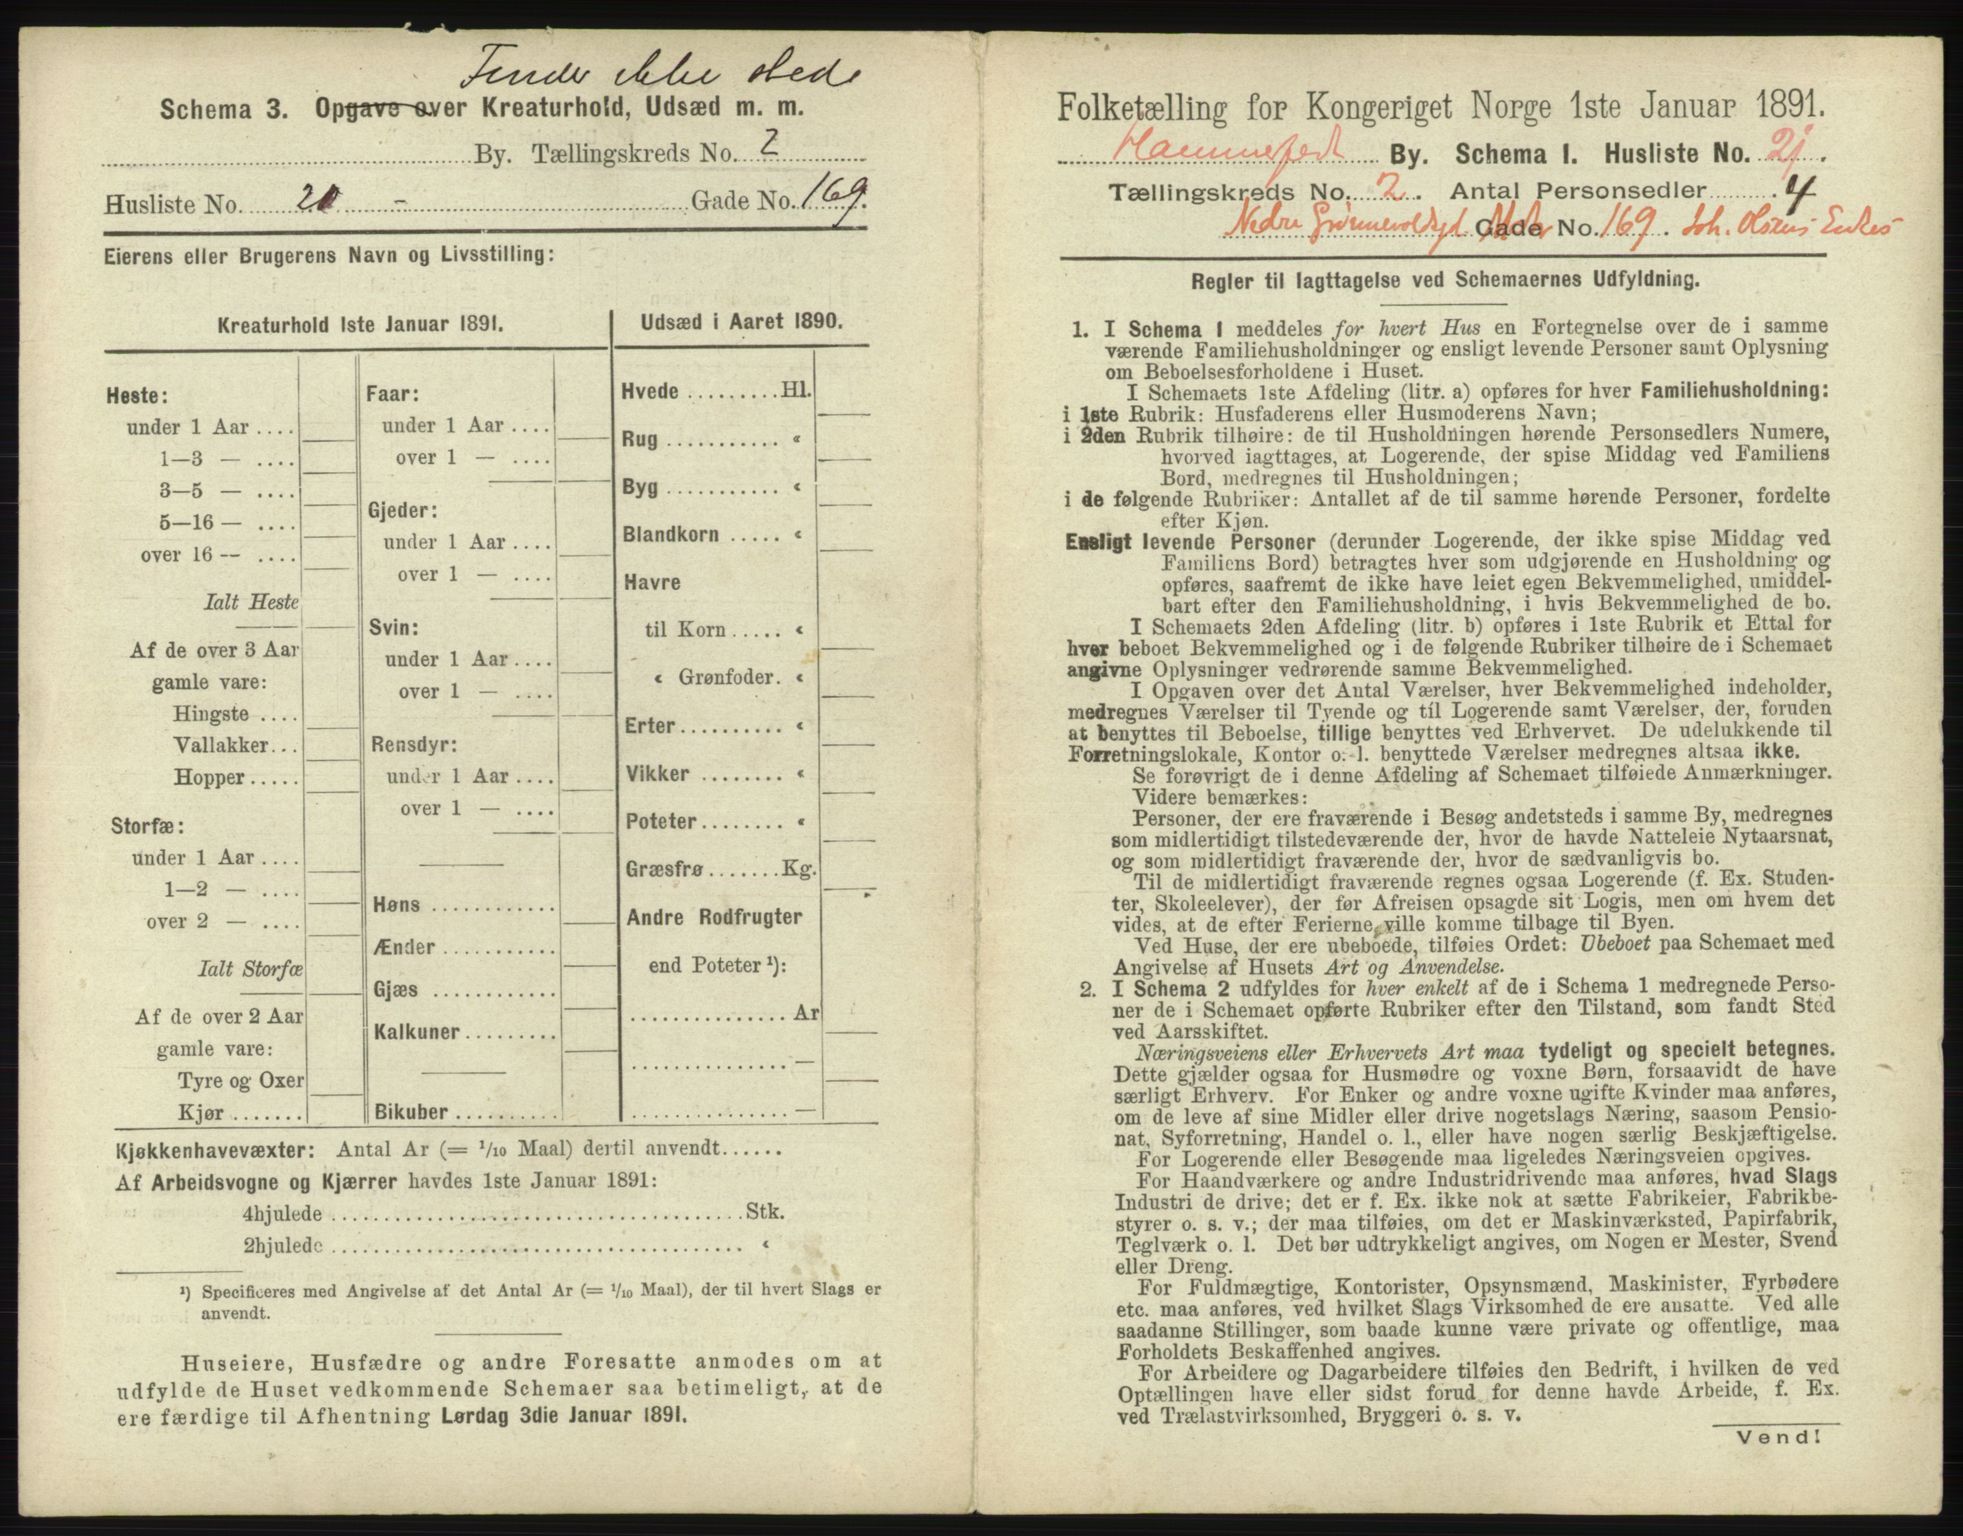 Finder ikke sted
Schema 3. Opgave over Kreaturhold, Udsæd m. m.
By. Tællingskreds No. 2
Husliste No. 21 - Gade No. 169.
Eierens eller Brugerens Navn og Livsstilling:
Kreaturhold 1ste Januar 1891.
Heste:
under 1 Aar ....
1—3 — ....
3—5 — ....
5—16 — ....
over 16 — ....
Ialt Heste
Af de over 3 Aar
gamle vare:
Hingste ....
Vallakker...
Hopper .....
Storfæ:
under 1 Aar ....
1—2 — ....
over 2 — ....
Ialt Storfæ
Af de over 2 Aar
gamle vare:
Tyre og Oxer
Kjør .......
Faar:
under 1 Aar ....
over 1 — ....
Gjeder:
under 1 Aar ....
over 1 — ....
Svin:
under 1 Aar ....
over 1 — ....
Rensdyr:
under 1 Aar ....
over 1 — ....
Høns ............
Ænder ............
Gjæs ............
Kalkuner .........
Bikuber ..........
Udsæd i Aaret 1890.
Hvede .........Hl.
Rug ........... «
Byg ........... «
Blandkorn ..... «
Havre
til Korn ..... «
« Grønfoder. «
Erter .......... «
Vikker ........ «
Poteter ........ «
Græsfrø .......Kg.
Andre Rodfrugter
end Poteter ¹):
............... Ar
............... —
............... —
Kjøkkenhavevæxter: Antal Ar (= 1/10 Maal) dertil anvendt......
Af Arbeidsvogne og Kjærrer havdes 1ste Januar 1891:
4hjulede ........................................Stk.
2hjulede ........................................ «
¹) Specificeres med Angivelse af det Antal Ar (= 1/10 Maal), der til hvert Slags er
anvendt.
Huseiere, Husfædre og andre Foresatte anmodes om at
udfylde de Huset vedkommende Schemaer saa betimeligt, at de
ere færdige til Afhentning Lørdag 3die Januar 1891.
Folketælling for Kongeriget Norge 1ste Januar 1891.
Hammerfest By. Schema 1. Husliste No. 21.
Tællingskreds No. 2. Antal Personsedler 4
Nedre Grønnevoldsgd Gade No. 169. Joh. Olsens Enkes
Regler til Iagttagelse ved Schemaernes Udfyldning.
1. I Schema 1 meddeles for hvert Hus en Fortegnelse over de i samme
værende Familiehusholdninger og ensligt levende Personer samt Oplysning
om Beboelsesforholdene i Huset.
I Schemaets 1ste Afdeling (litr. a) opføres for hver Familiehusholdning:
i 1ste Rubrik: Husfaderens eller Husmoderens Navn;
i 2den Rubrik tilhøire: de til Husholdningen hørende Personsedlers Numere,
hvorved iagttages, at Logerende, der spise Middag ved Familiens
Bord, medregnes til Husholdningen;
i de følgende Rubriker: Antallet af de til samme hørende Personer, fordelte
efter Kjøn.
Ensligt levende Personer (derunder Logerende, der ikke spise Middag ved
Familiens Bord) betragtes hver som udgjørende en Husholdning og
opføres, saafremt de ikke have leiet egen Bekvemmelighed, umiddel-
bart efter den Familiehusholdning, i hvis Bekvemmelighed de bo.
I Schemaets 2den Afdeling (litr. b) opføres i 1ste Rubrik et Ettal for
hver beboet Bekvemmelighed og i de følgende Rubriker tilhøire de i Schemaet
angivne Oplysninger vedrørende samme Bekvemmelighed.
I Opgaven over det Antal Værelser, hver Bekvemmelighed indeholder,
medregnes Værelser til Tyende og til Logerende samt Værelser, der, foruden
at benyttes til Beboelse, tillige benyttes ved Erhvervet. De udelukkende til
Forretningslokale, Kontor o. l. benyttede Værelser medregnes altsaa ikke.
Se forøvrigt de i denne Afdeling af Schemaet tilføiede Anmærkninger.
Videre bemærkes:
Personer, der ere fraværende i Besøg andetsteds i samme By, medregnes
som midlertidigt tilstedeværende der, hvor de havde Natteleie Nytaarsnat,
og som midlertidigt fraværende der, hvor de sædvanligvis bo.
Til de midlertidigt fraværende regnes ogsaa Logerende (f. Ex. Studen-
ter, Skoleelever), der før Afreisen opsagde sit Logis, men om hvem det
vides, at de efter Ferierne ville komme tilbage til Byen.
Ved Huse, der ere ubeboede, tilføies Ordet: Ubeboet paa Schemaet med
Angivelse af Husets Art og Anvendelse.
2. I Schema 2 udfyldes for hver enkelt af de i Schema 1 medregnede Perso-
ner de i Schemaet opførte Rubriker efter den Tilstand, som fandt Sted
ved Aarsskiftet.
Næringsveiens eller Erhvervets Art maa tydeligt og specielt betegnes.
Dette gjælder ogsaa for Husmødre og voxne Børn, forsaavidt de have
særligt Erhverv. For Enker og andre voxne ugifte Kvinder maa anføres,
om de leve af sine Midler eller drive nogetslags Næring, saasom Pensio-
nat, Syforretning, Handel o. l., eller have nogen særlig Beskjæftigelse.
For Logerende eller Besøgende maa ligeledes Næringsveien opgives.
For Haandværkere og andre Industridrivende maa anføres, hvad Slags
Industri de drive; det er f. Ex. ikke nok at sætte Fabrikeier, Fabrikbe-
styrer o. s. v.; der maa tilføies, om det er Maskinværksted, Papirfabrik,
Teglværk o. l. Det bør udtrykkeligt angives, om Nogen er Mester, Svend
eller Dreng.
For Fuldmægtige, Kontorister, Opsynsmænd, Maskinister, Fyrbødere
etc. maa anføres, ved hvilket Slags Virksomhed de ere ansatte. Ved alle
saadanne Stillinger, som baade kunne være private og offentlige, maa
Forholdets Beskaffenhed angives.
For Arbeidere og Dagarbeidere tilføies den Bedrift, i hvilken de ved
Optællingen have eller sidst forud for denne havde Arbeide, f. Ex.
ved Trælastvirksomhed, Bryggeri o. s. v.
Vend!